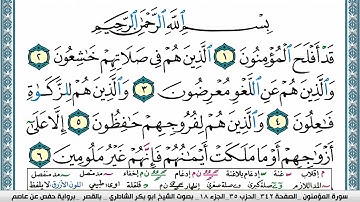 بِسْمِ ٱللَّهِ ٱلرَّحْمَٰنِ ٱلرَّحِيمِ
قَدْ أَفْلَحَ ٱلْمُؤْمِنُونَ ١ ٱلَّذِينَ هُمْ فِى صَلَاتِهِمْ خَٰشِعُونَ ٢
وَٱلَّذِينَ هُمْ عَنِ ٱللَّغْوِ مُعْرِضُونَ ٣ وَٱلَّذِينَ هُمْ لِلزَّكَوٰةِ
فَٰعِلُونَ ٤ وَٱلَّذِينَ هُمْ لِفُرُوجِهِمْ حَٰفِظُونَ ٥ إِلَّا عَلَىٰٓ
أَزْوَٰجِهِمْ أَوْ مَا مَلَكَتْ أَيْمَٰنُهُمْ فَإِنَّهُمْ غَيْرُ مَلُومِينَ ٦
سورة المؤمنون الصفحة ٣٤٢ الحزب ٣٥ الجزء ١٨ بصوت الشيخ ابو بكر الشاطري بالقصر برواية حفص عن عاصم